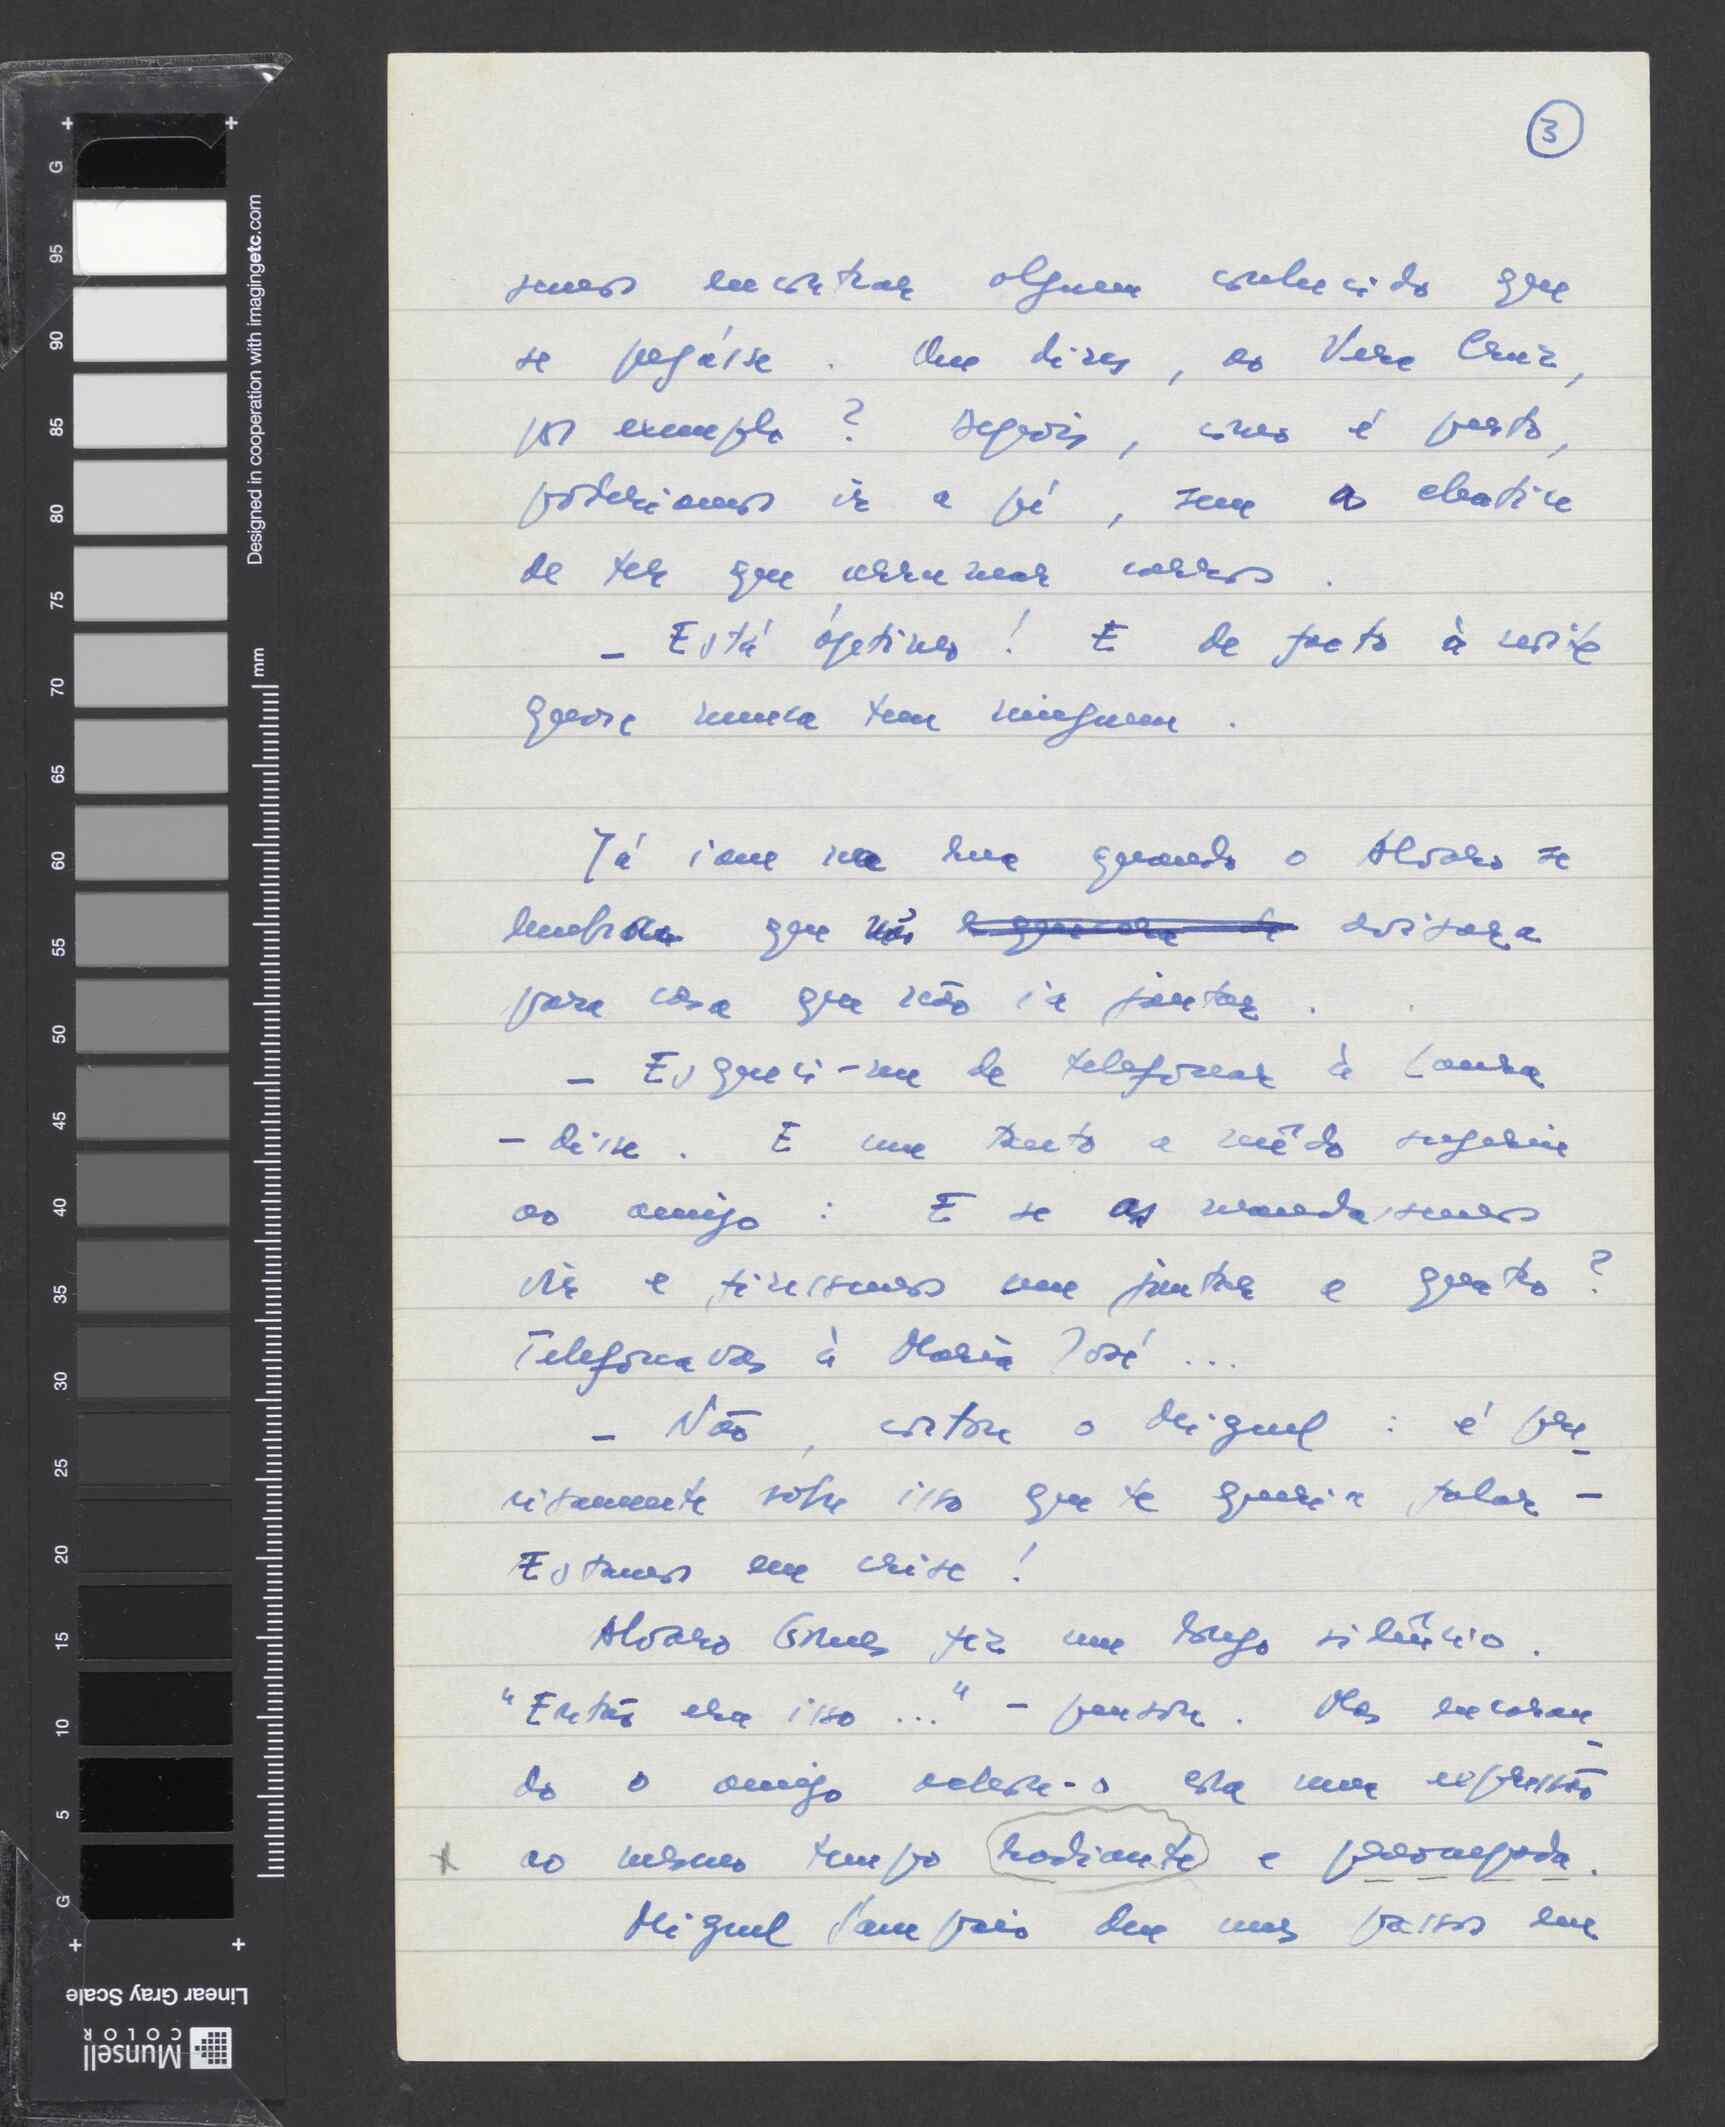 3
semos encontrar alguem conhecido que
se pegásse. Que dizes, ao Vera Cruz,
por exemplo? Depois, como é perto,
poderiamos ir a pé, sem a chatice
de ter que arrumar carros.
– Está óptimo! E de facto à noite
quase nunca tem ninguem.
Já iam na rua quando o Alvaro se
lembrou que não avisara
para casa que não ia jantar.
– Esqueci-me de telefonar à Laura
– disse. E um tanto a mêdo sugeriu
ao amigo: E se as mandassemos
vir e fizessemos um jantar a quatro?
Telefonavas à Maria José...
– Não, cortou o Miguel: é pre-
cisamente sobre isso que te queria falar –
Estamos em crise!
Alvaro Gomes fez um longo silêncio.
"Então era isso..." – pensou. Mas encaran-
do o amigo achou-o com uma expressão
x ao mesmo tempo radiante e preocupada.
Miguel Sampaio deu uns passos em
G 95 90 85 80 75 70 65 60 55 50 45 40 35 30 25 20 15 10 5 G
Designed in cooperation with imagingetc.com
mm
Linear Gray Scale
Munsell
COLOR